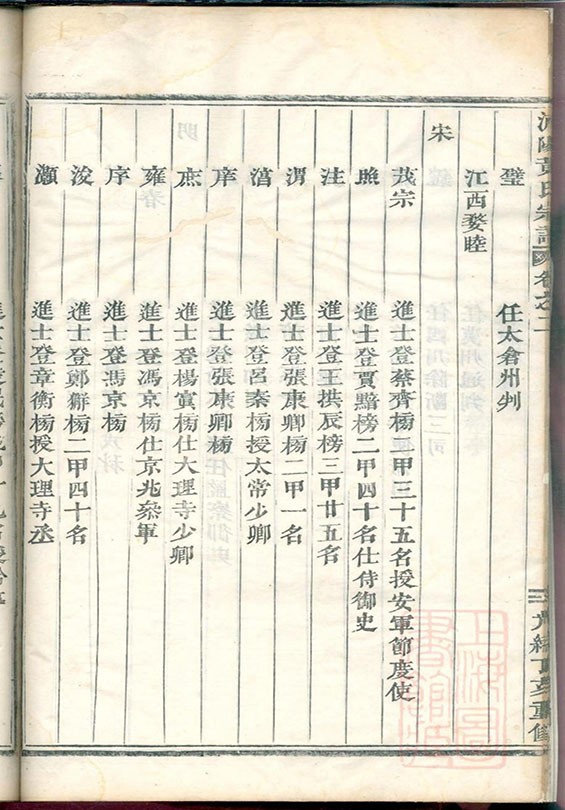 黃氏宗譜 卷之一
璧 任太倉州判
江西婺睦
宋
茂宗 進士登蔡齊榜二甲三十五名授安軍節度使
照 進士登賈黯榜二甲四十名仕侍御史
注 進士登王拱辰榜三甲廿五名
渭 進士登張康卿榜二甲一名
渻 進士登呂秦榜授太常少卿
庠 進士登張康卿榜
庶 進士登楊寘榜仕大理寺少卿
雍 進士登馮京榜仕京兆叅軍
序 進士登馮京榜
浚 進士登鄭獬榜二甲四十名
灝 進士登章衡榜授大理寺丞
光緒丁亥重修
上海圖書館藏